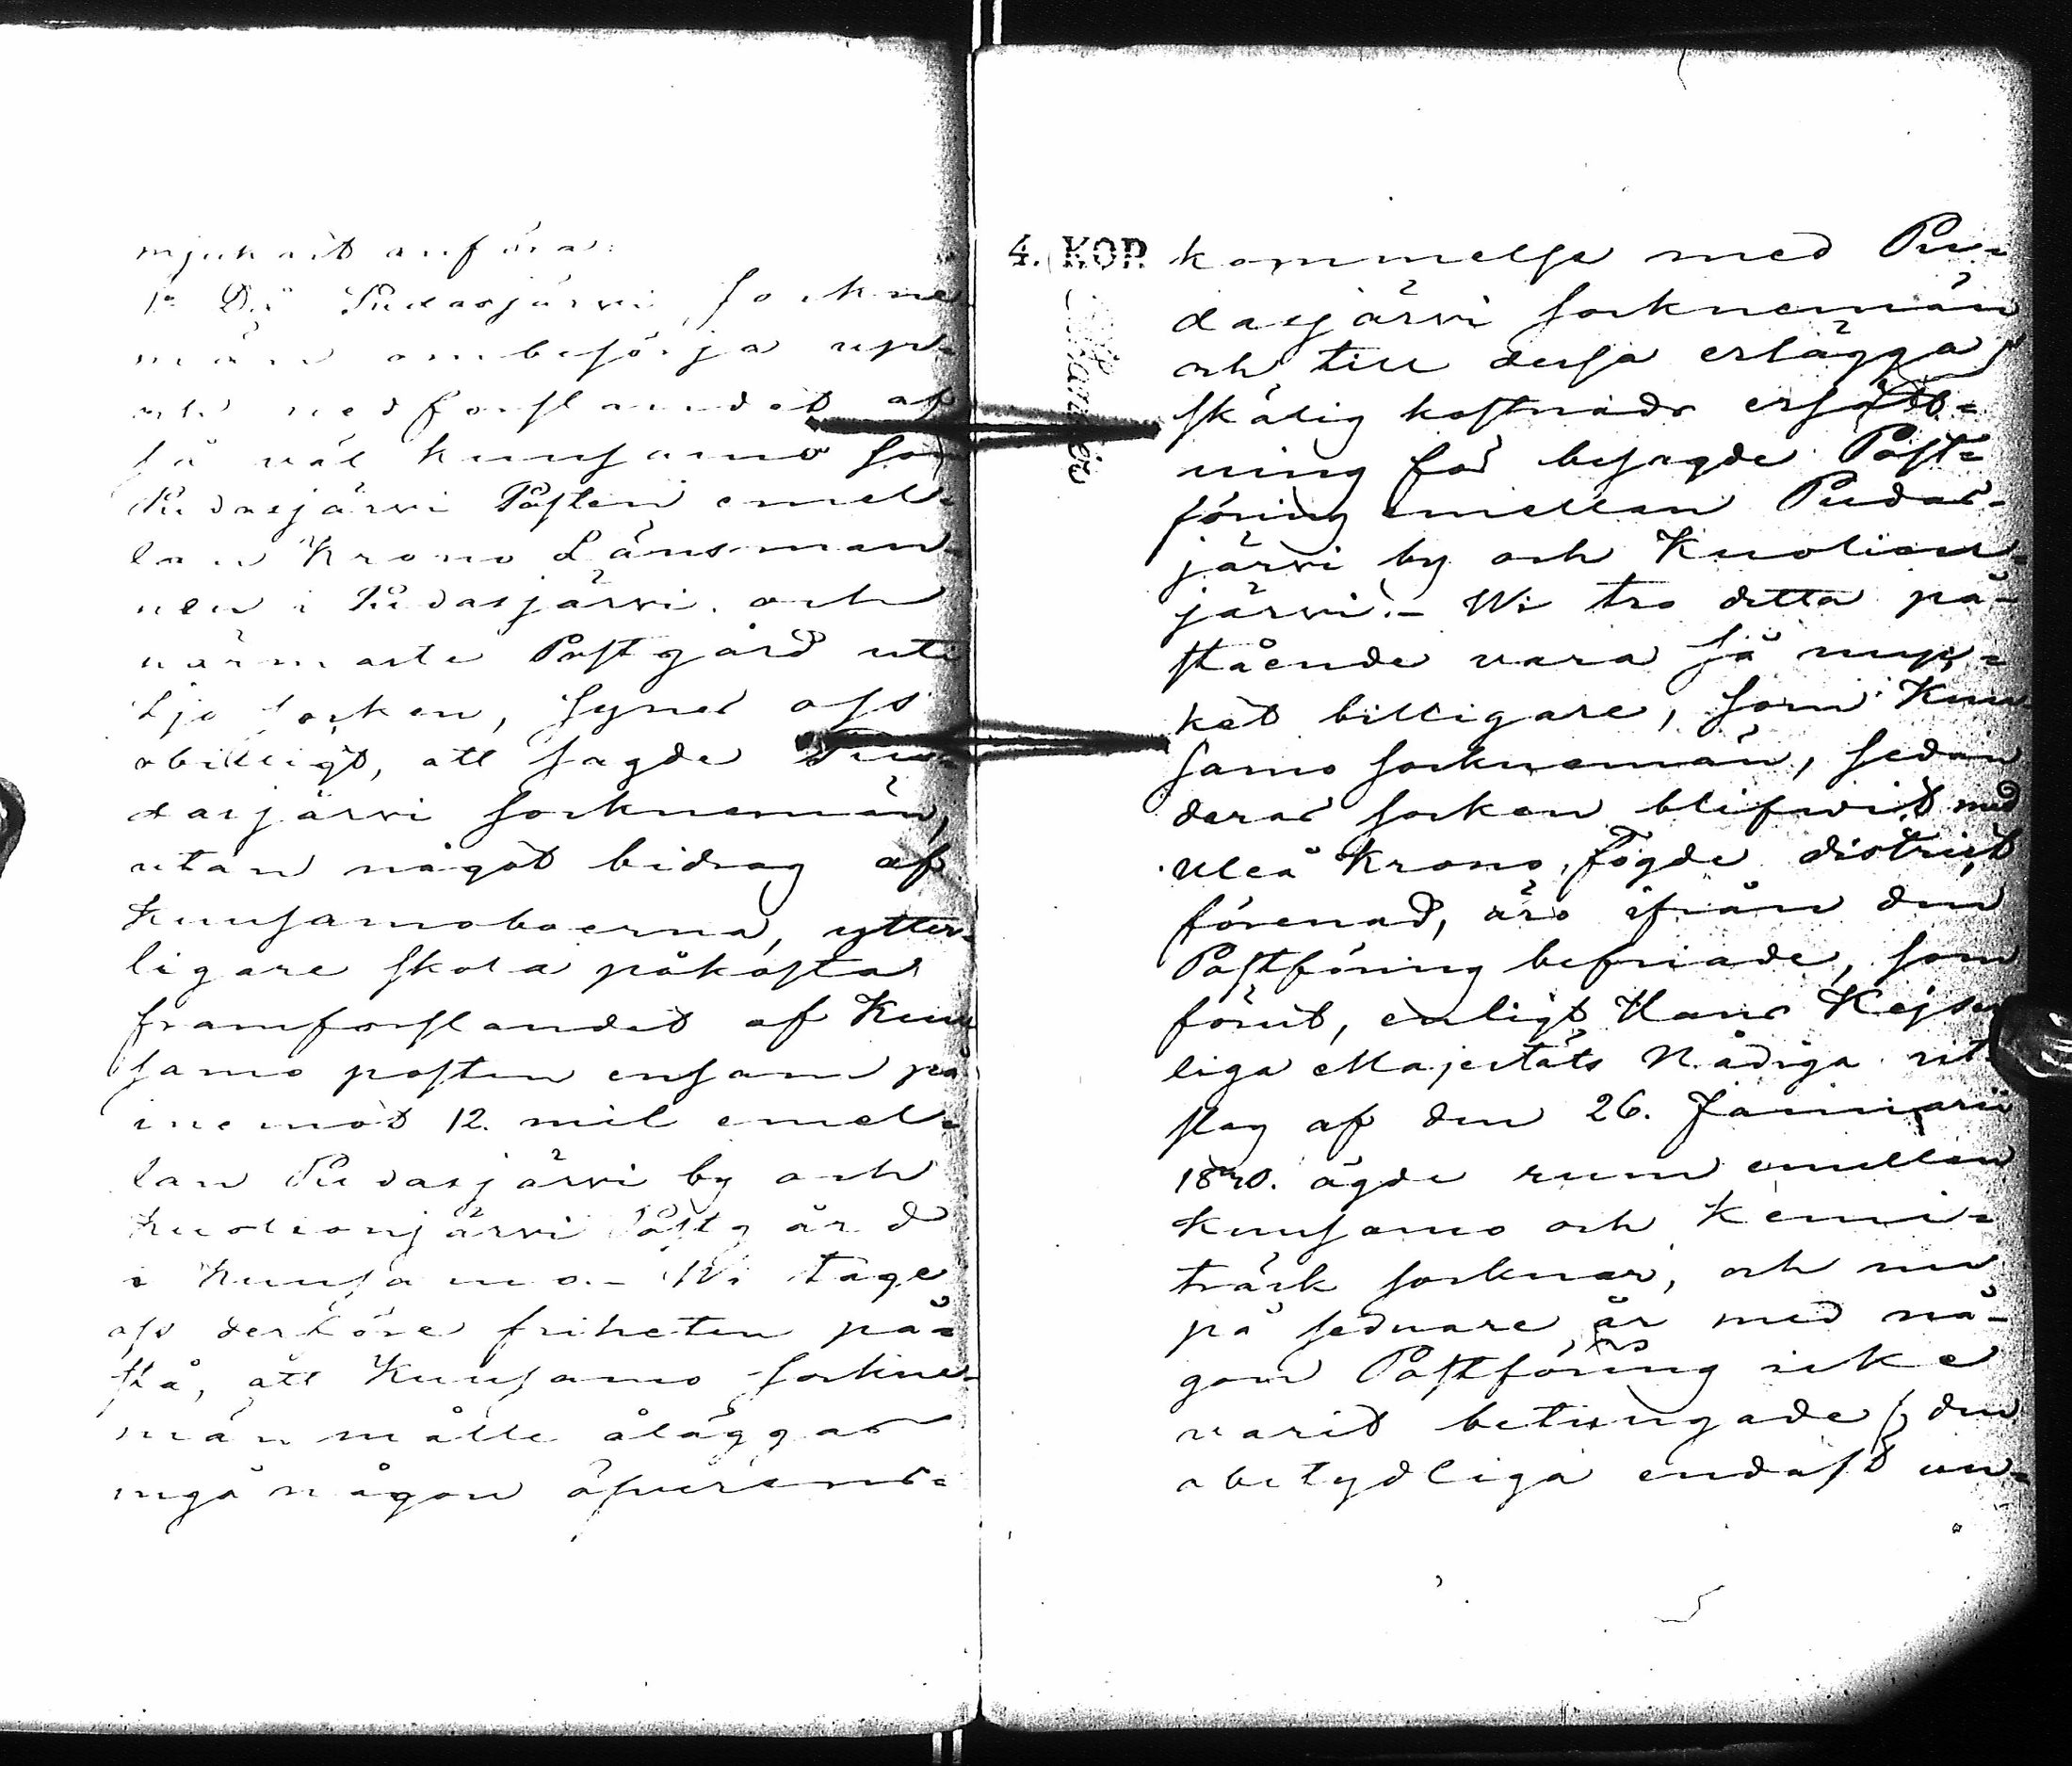 mjukast anföra:
1o Då Pudasjärvi sockne
män ombesörja upp-
och nedforslandet af
så väl Kuusamo som
Pudasjärvi Posten emel-
lan Krono Länsman-
nen i Pudasjärvi och
närmaste Postgård uti
Ijo socken, synes oss
obilligt, att sagde Pu-
dasjärvi socknemän,
utan något bidrag af
Kuusamoboerna, ytter-
ligare skola påkosta
framforslandet af Kuu
samo posten ensam på
inemot 12. mil emel-
lan Pudasjärvi by och
Kuolionjärvi Postgård
i Kuusamo.- Wi tage
oss derföre friheten på-
stå, att Kuusamo sockne-
män måtte åläggas
ingå någon öfverens-
4. KOP.
kommelse med Pu-
dasjärvi socknemän
och till dessa erlägga
skälig kostnads ersätt-
ning för besagde Post-
föring emellan Pudas-
järvi by och Kuolion-
järvi.- Wi tro detta på-
stående vara så myc-
ket billigare, som Kuu
samo socknemän, sedan
deras socken blifwit med
Uleå Krono Fögde district
förenad, äro ifrån den
Postföring befriade, som
förut, enligt Hans Kejser
liga Majestäts Nådiga ut
slag af den 26. Januarii
1820. ägde rum emellan
Kuusamo och Kemi-
träsk socknar, och nu
på sednare år med nå-
gon Postföring icke
varit betungade, den
obetydliga endast un-